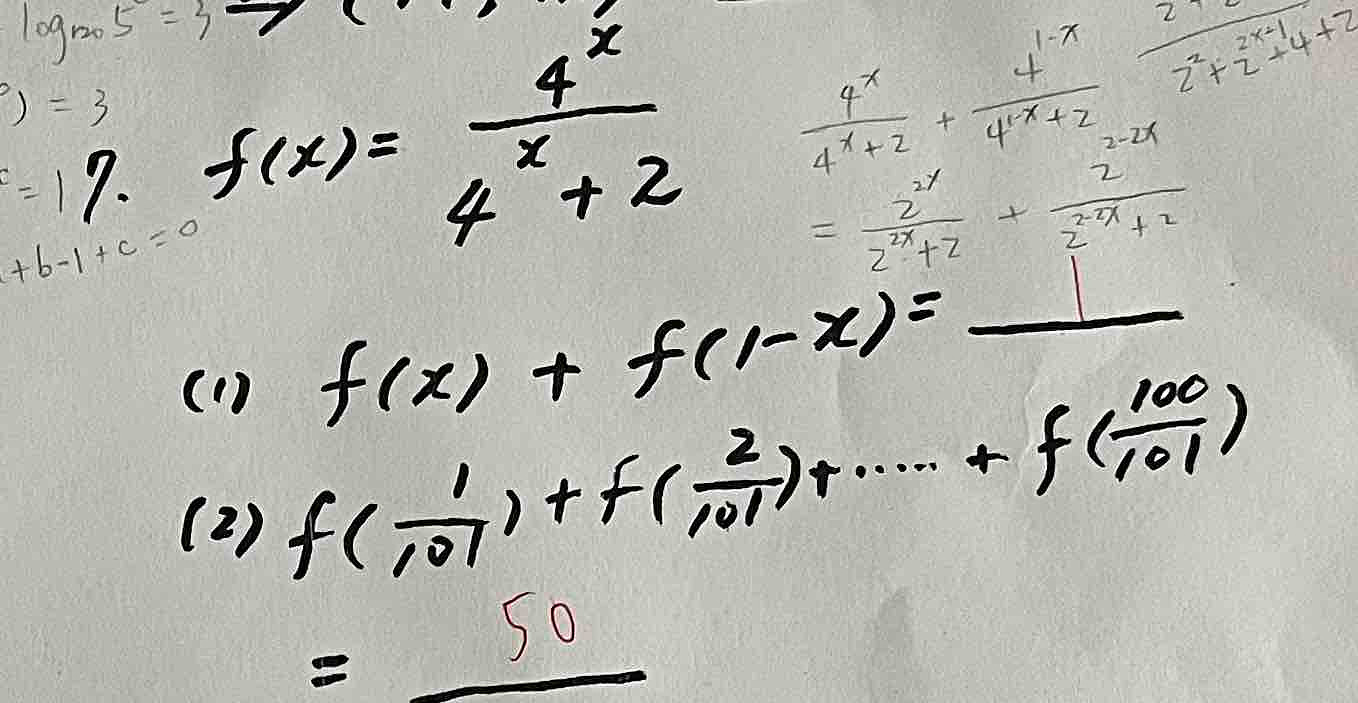 log₁₂₀ 5 = 3 ⇒ (
) = 3
= 1
+b-1+c=0
7. f(x) = 4^x / (4^x + 2)
4^x / (4^x + 2) + 4^(1-x) / (4^(1-x) + 2)
= 2^(2x) / (2^(2x) + 2) + 2^(2-2x) / (2^(2-2x) + 2)
2^2 + 2^(2x-1) + 4 + 2
(1) f(x) + f(1-x) = 1
(2) f(1/101) + f(2/101) + ..... + f(100/101)
= 50